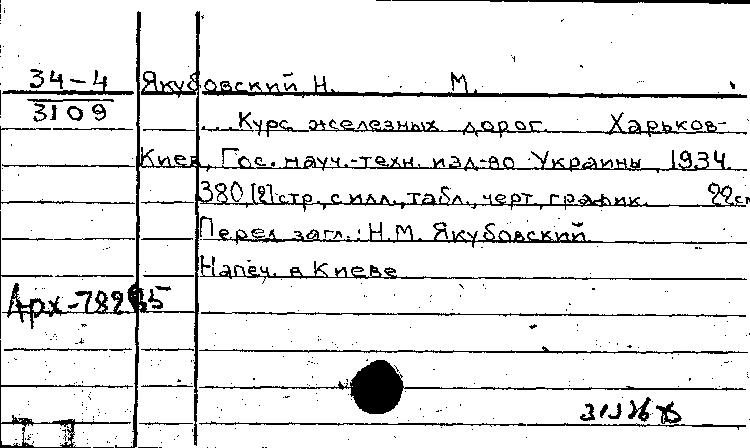 34-4
3109
Якубовский, Н. М.
... Курс железных дорог. Харьков-
Киев, Гос. науч.-техн. изд-во Украины, 1934.
380,[2]стр., с илл., табл., черт., график. 22см
Перед загл.: Н.М. Якубовский
Напеч. в Киеве